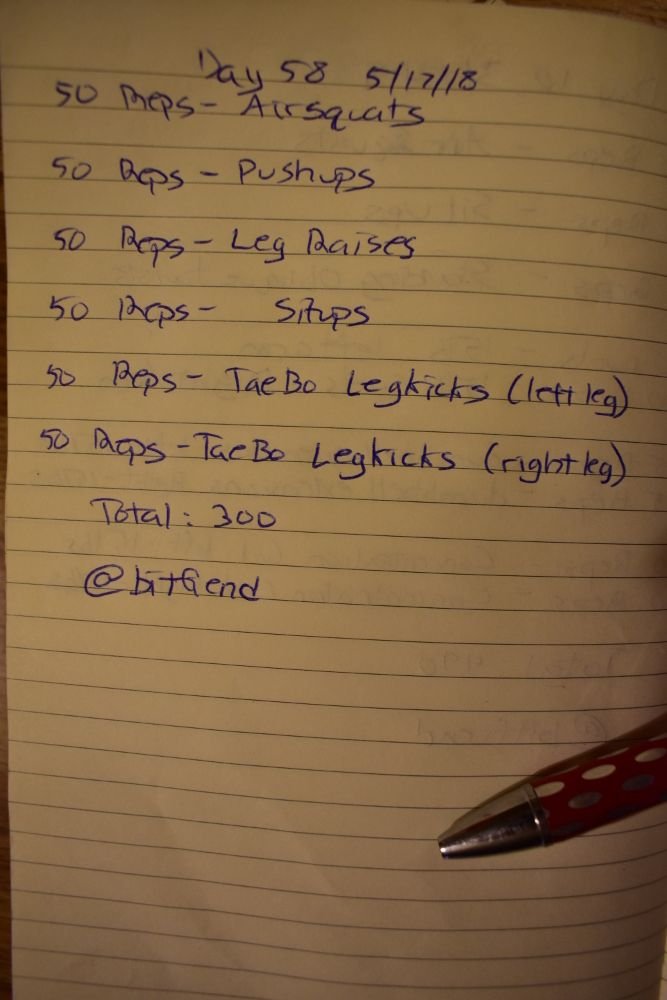 Day 58 5/17/18
50 Reps - Airsquats
50 Reps - Pushups
50 Reps - Leg Raises
50 Reps - Situps
50 Reps - TaeBo Legkicks (left leg)
50 Reps - TaeBo Legkicks (right leg)
Total: 300
@bitfiend